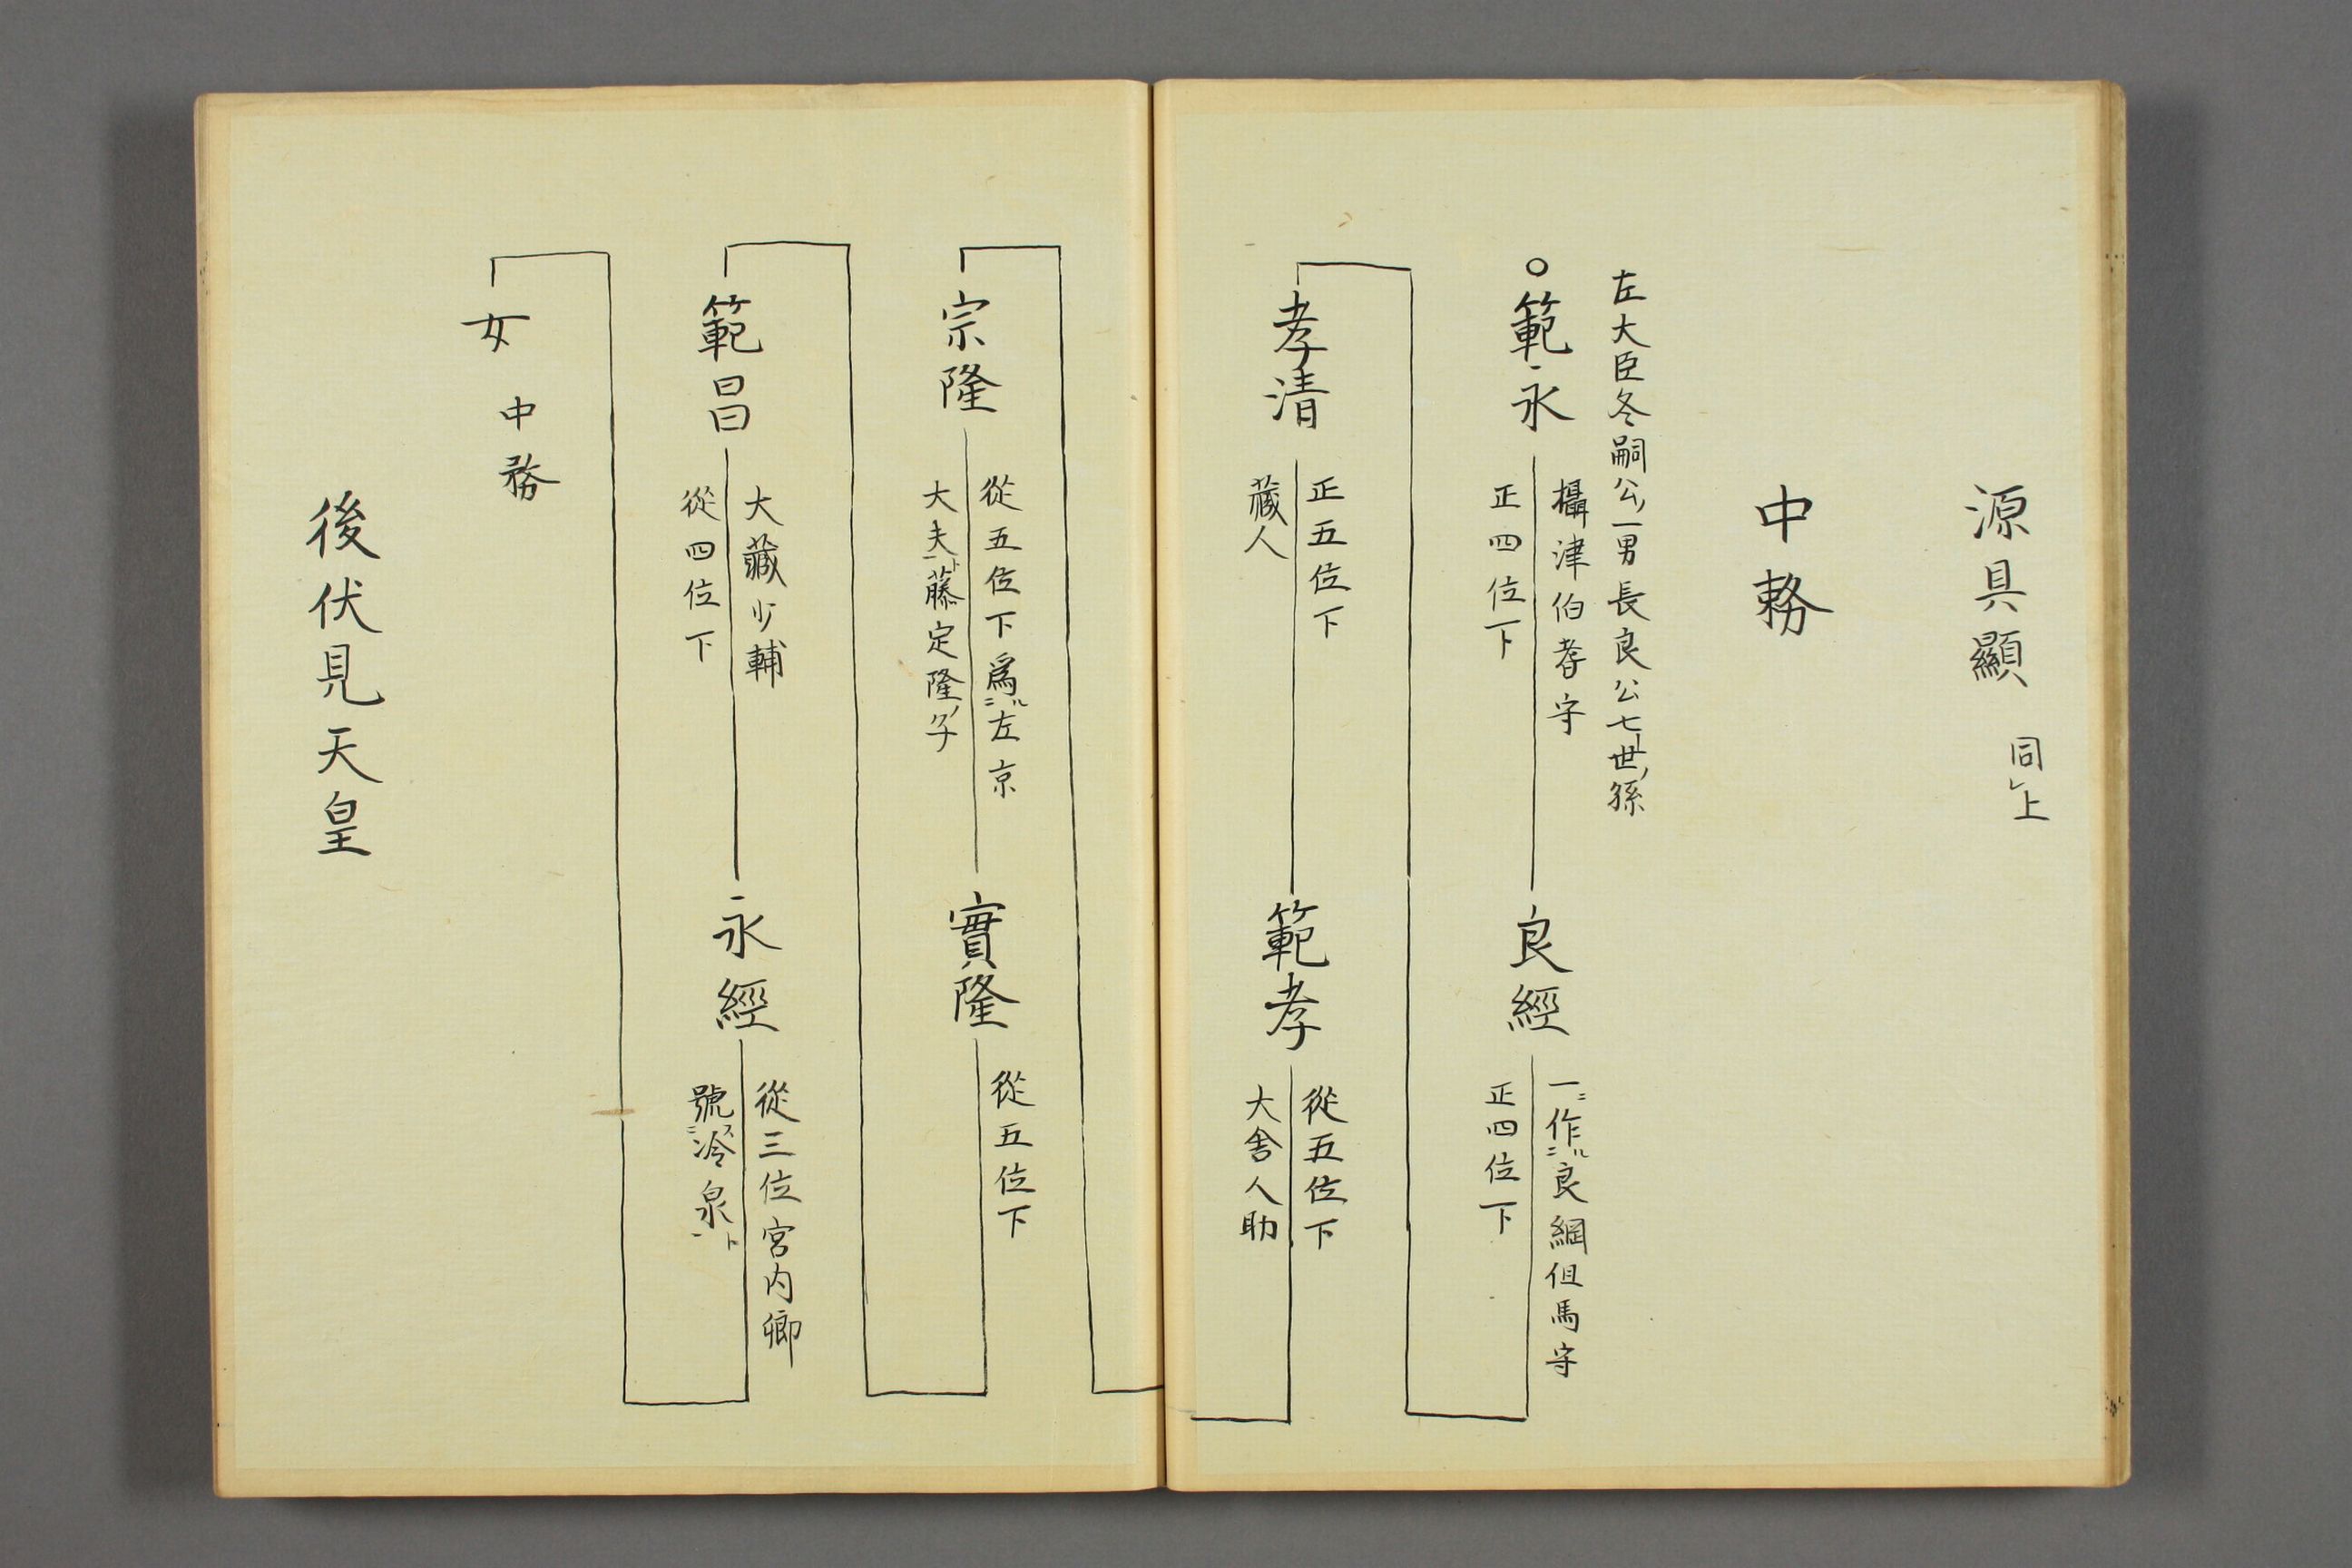 源具顯 同上
中務
左大臣冬嗣公一男長良公七世ノ孫
○範永
攝津伯耆守
正四位下
良經
一ニ作ル二良綱但馬守
正四位下
孝清
正五位下
藏人
範孝
從五位下
大舍人助
宗隆
從五位下爲ル二左京
大夫ト一藤定隆ノ子
實隆
從五位下
範昌
大藏少輔
從四位下
永經
從三位宮内卿
號ス二冷泉ト一
女 中務
後伏見天皇